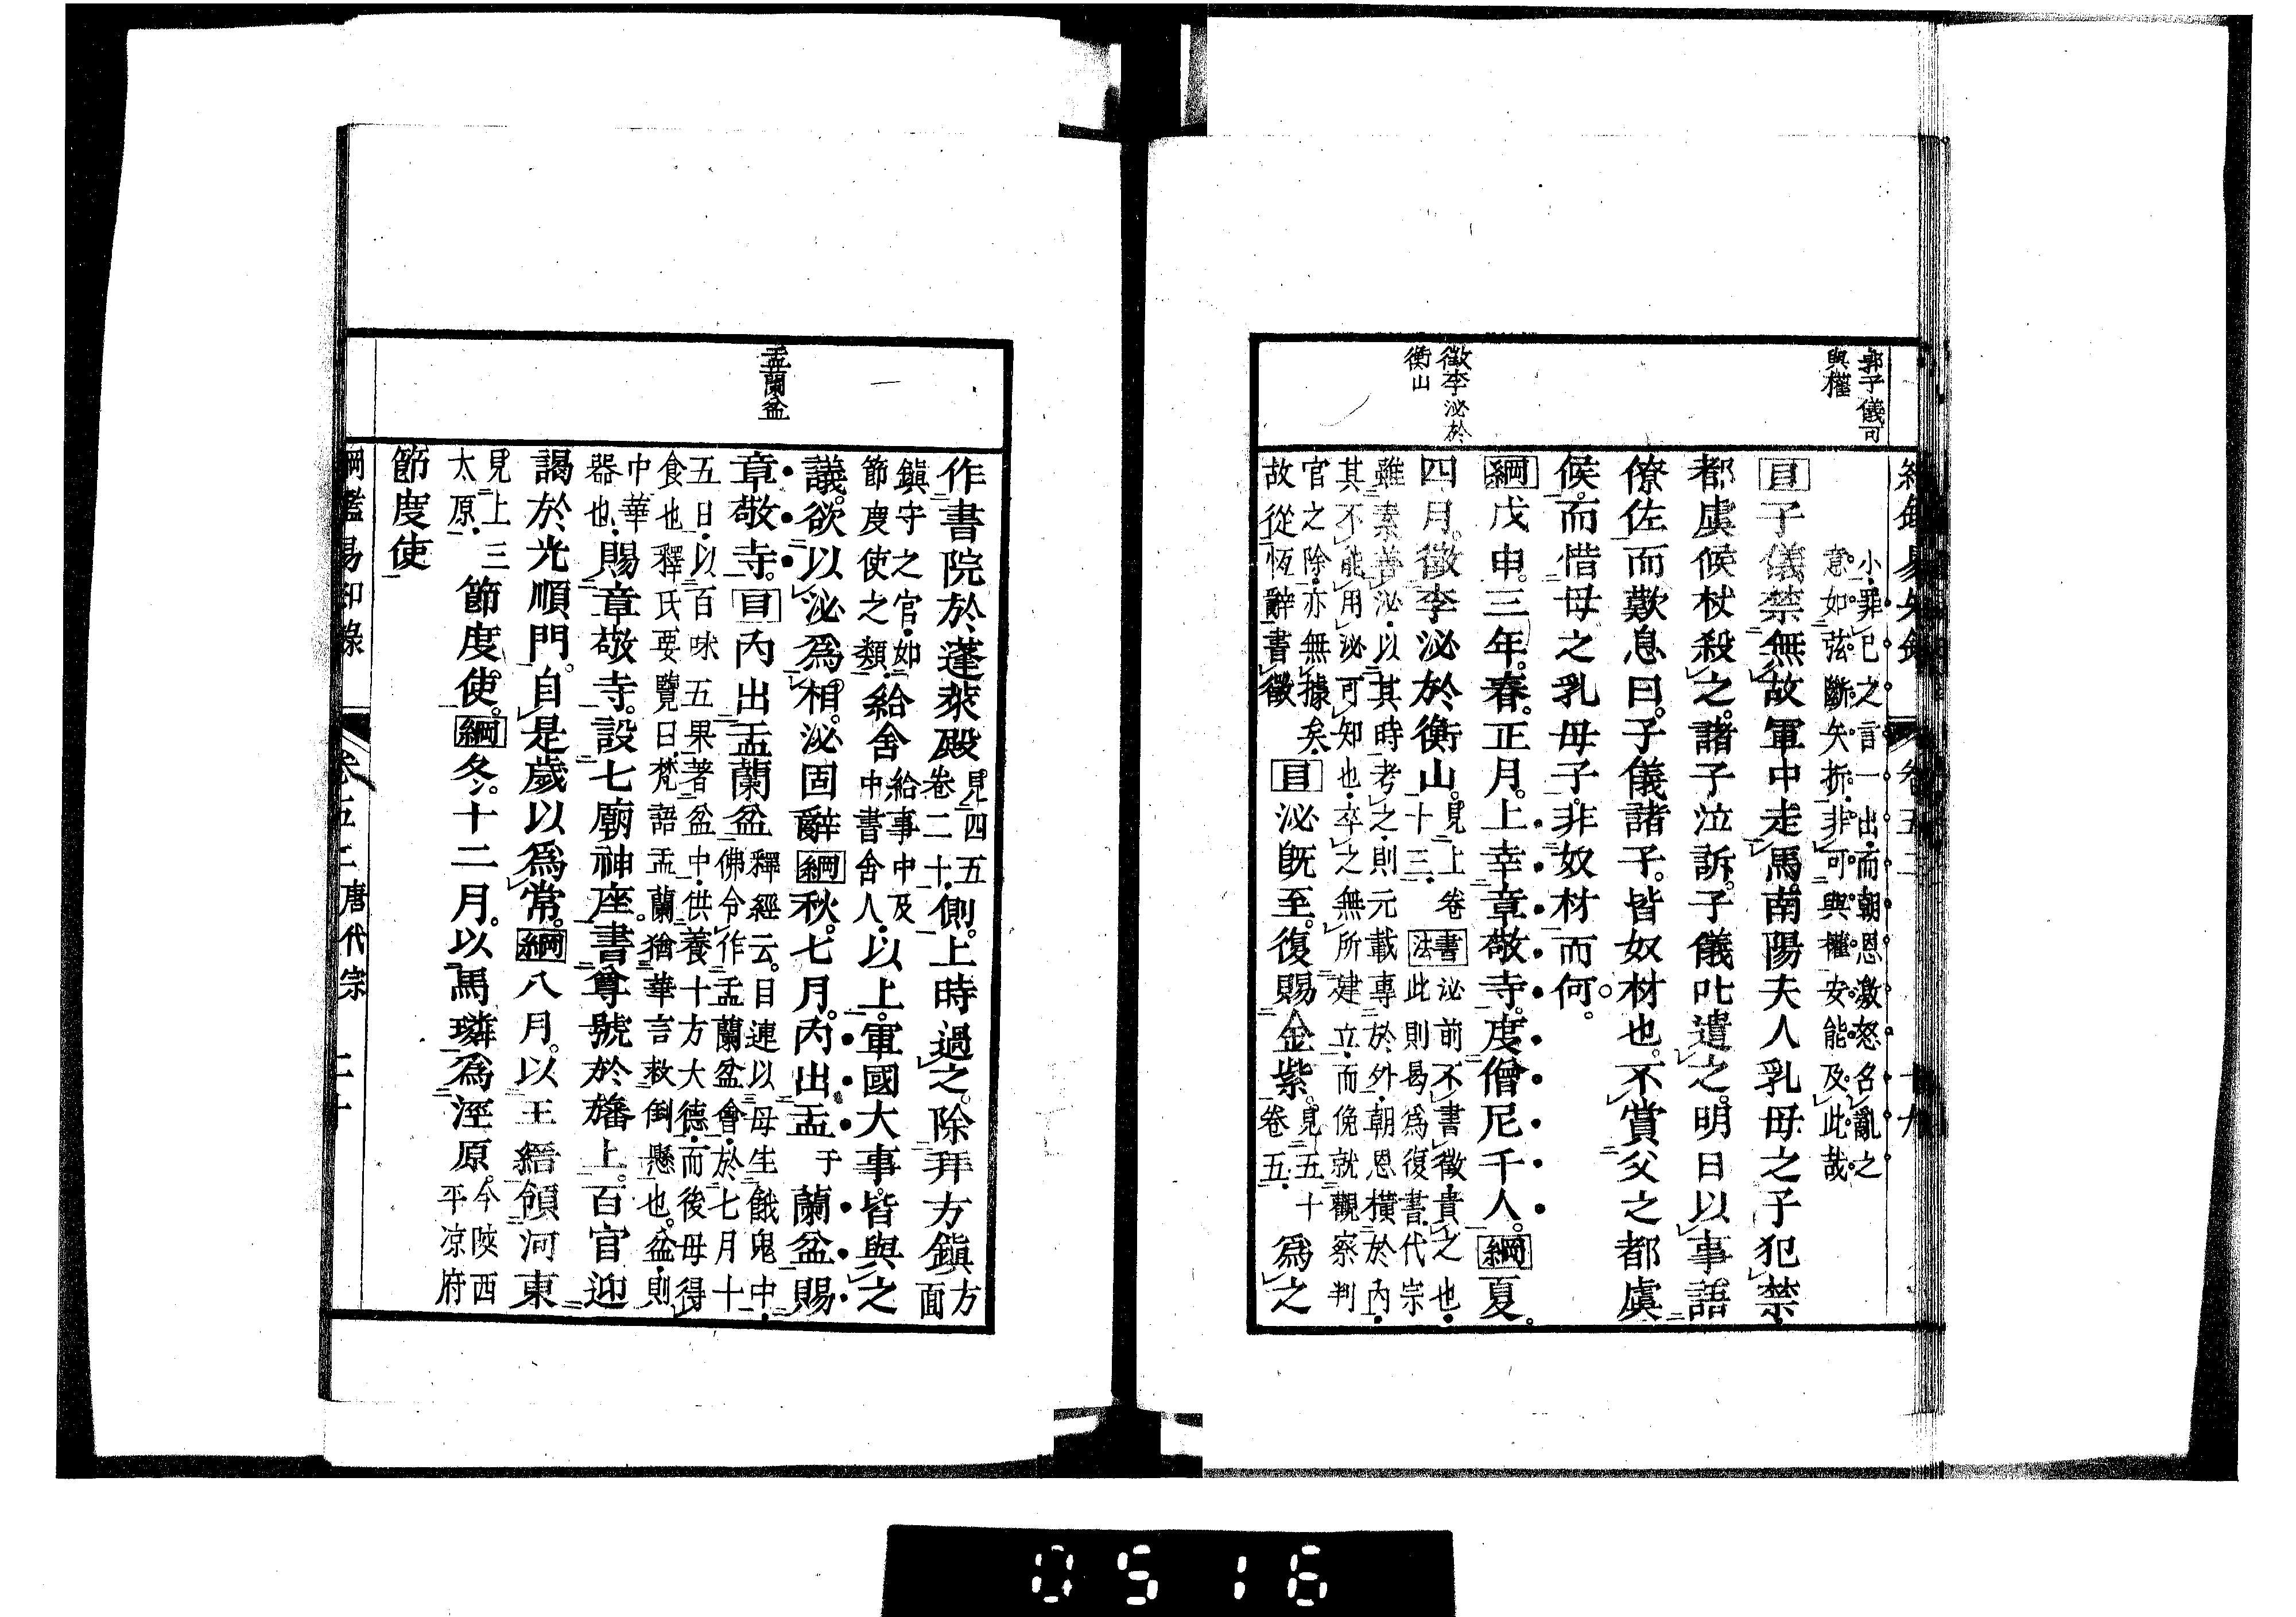 郭子儀可
與權
小罪已之言一出而朝恩激怒名亂之
意如弦斷矢折非可與權安能及此哉
目子儀禁無故軍中走馬南陽夫人乳母之子犯禁
都虞候杖殺之諸子泣訴子儀叱遣之明日以事語
僚佐而歎息曰子儀諸子皆奴材也不賞父之都虞
候而惜母之乳母子非奴材而何
綱戊申三年春正月上幸章敬寺度僧尼千人綱夏
徵李泌於
衡山
四月徵李泌於衡山見上卷十三書法泌前不書徵貴之也此則曷為復書代宗
雖素善泌以其時考之則元載專於外朝恩橫於內
其不能用泌可知也卒之無所建立而俛就觀察判
官之除亦無據矣
故從恆辭書徵目泌既至復賜金紫見五十卷五為之
作書院於蓬萊殿見四五卷二十側上時過之除拜方鎮方面
鎮守之官如節度使之類給舍給事中及中書舍人以上軍國大事皆與之
議欲以泌為相泌固辭綱秋七月內出盂于蘭盆賜
盂蘭盆
章敬寺目內出盂蘭盆釋經云目連以母生餓鬼中佛令作盂蘭盆會於七月十
五日以百味五果著盆中供養十方大德而後母得
食也釋氏要覽曰梵語盂蘭猶華言救倒懸也盆則
中華器也賜章敬寺設七廟神座書尊號於旛上百官迎
謁於光順門自是歲以為常綱八月以王縉領河東
見上三太原節度使綱冬十二月以馬璘為涇原今陝西平凉府
節度使
綱鑑易知錄 卷五二 唐代宗 二十